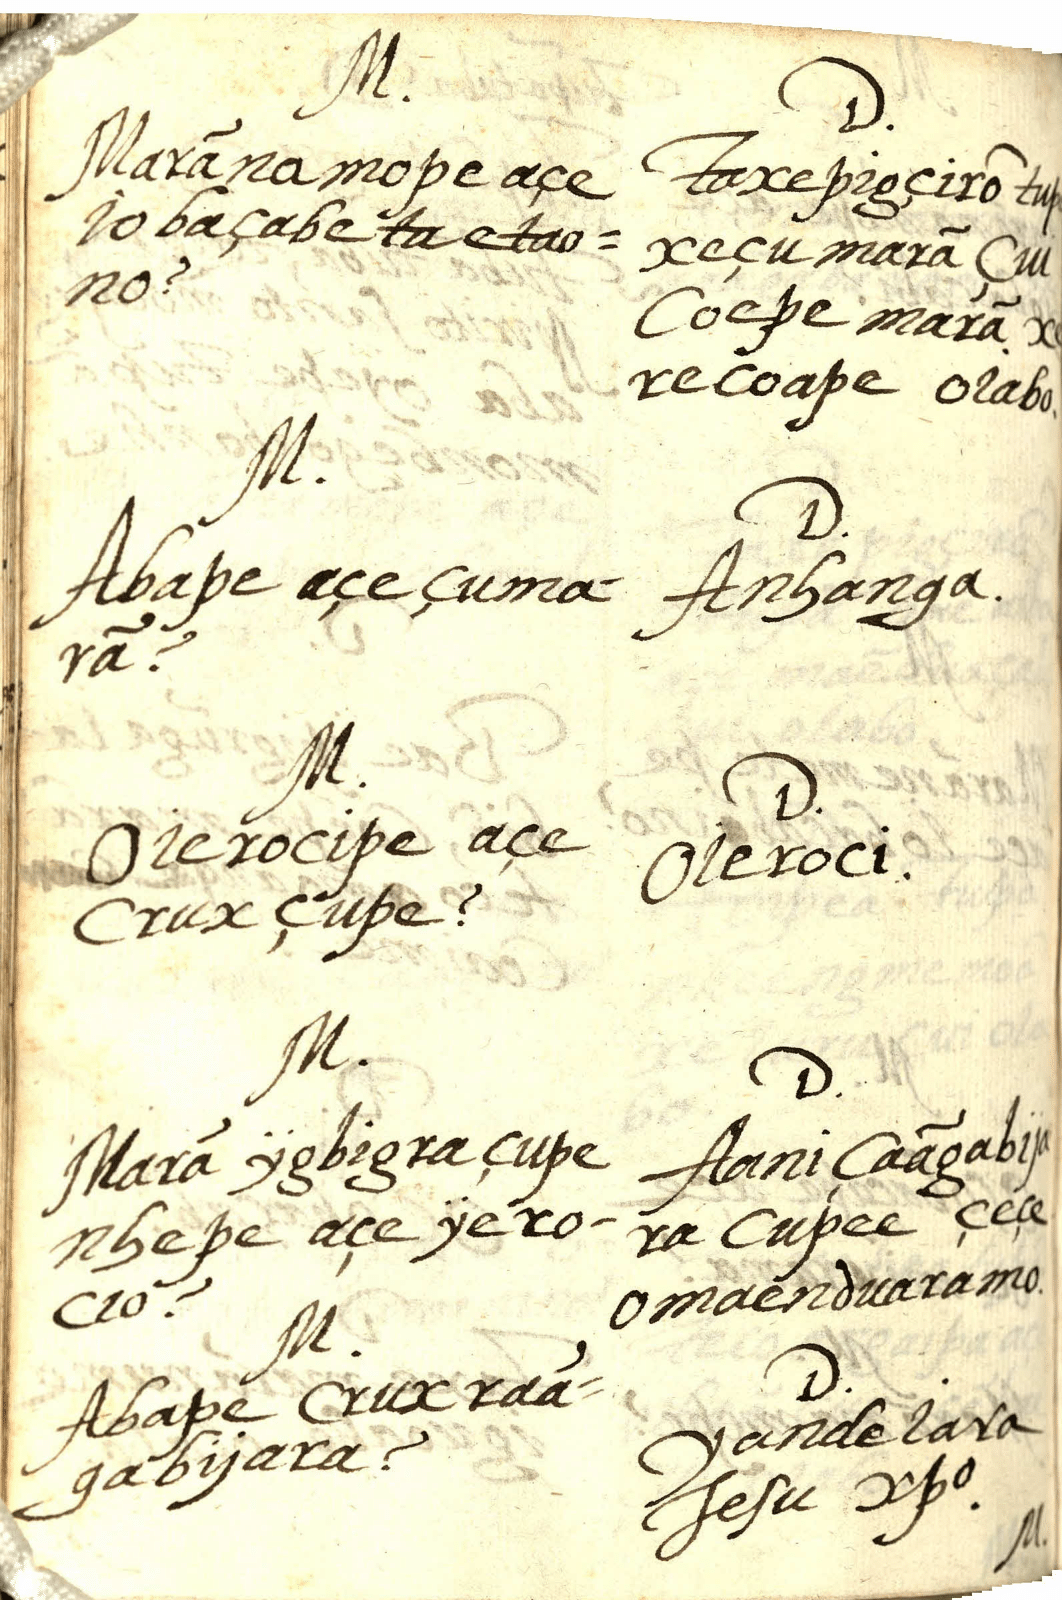 M.
Marãnamope açe
iobaçabe ta etao=
no?
D.
taxepigçirõ tup
xeçumarã çui
Coepe marã xe
recoape oiabo.
M.
Abape açe çuma-
rã?
D.
Anhanga.
M.
Oierocipe açe
Crux çupe?
D.
Oieroci.
M.
Marã ÿgbigra çupe
nhepe açe ÿero-
cio?
D.
Aani Çaãgabija
ra cupee çeçe
omaenduaramo.
M.
Abape Crux raã=
gabijara?
D.
yande iara
Jesu xpº.
M.